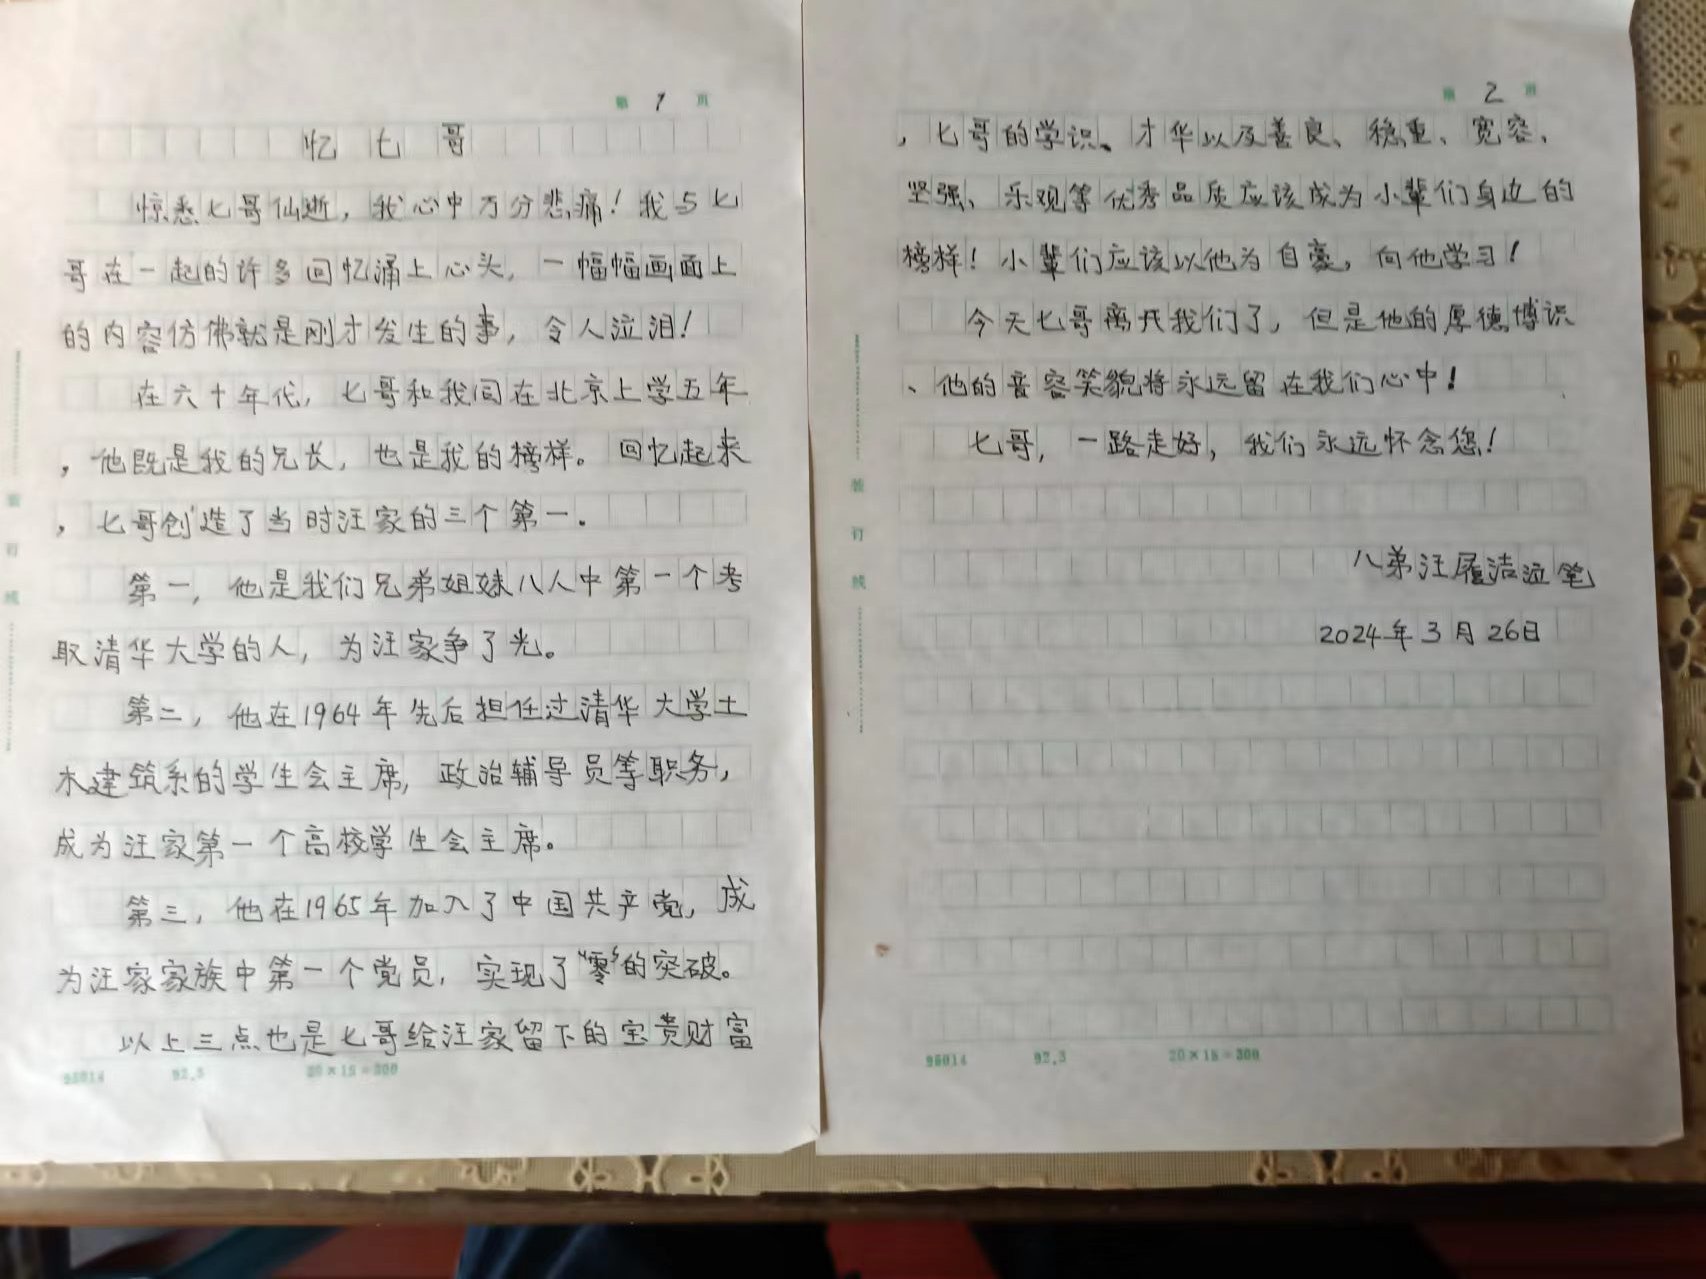 第 1 页
忆七哥
惊悉七哥仙逝，我心中万分悲痛！我与七
哥在一起的许多回忆涌上心头，一幅幅画面上
的内容仿佛就是刚才发生的事，令人泣泪！
在六十年代，七哥和我同在北京上学五年
，他既是我的兄长，也是我的榜样。回忆起来
，七哥创造了当时汪家的三个第一．
第一，他是我们兄弟姐妹八人中第一个考
取清华大学的人，为汪家争了光。
第二，他在1964年先后担任过清华大学土
木建筑系的学生会主席，政治辅导员等职务，
成为汪家第一个高校学生会主席。
第三，他在1965年加入了中国共产党，成
为汪家家族中第一个党员，实现了“零”的突破。
以上三点也是七哥给汪家留下的宝贵财富
装订线
95014 92.3 20×15=300
第 2 页
，七哥的学识、才华以及善良、稳重、宽容、
坚强、乐观等优秀品质应该成为小辈们身边的
榜样！小辈们应该以他为自豪，向他学习！
今天七哥离开我们了，但是他的厚德博识
、他的音容笑貌将永远留在我们心中！
七哥，一路走好，我们永远怀念您！
八弟汪履洁泣笔
2024年3月26日
装订线
95014 92.3 20×15=300